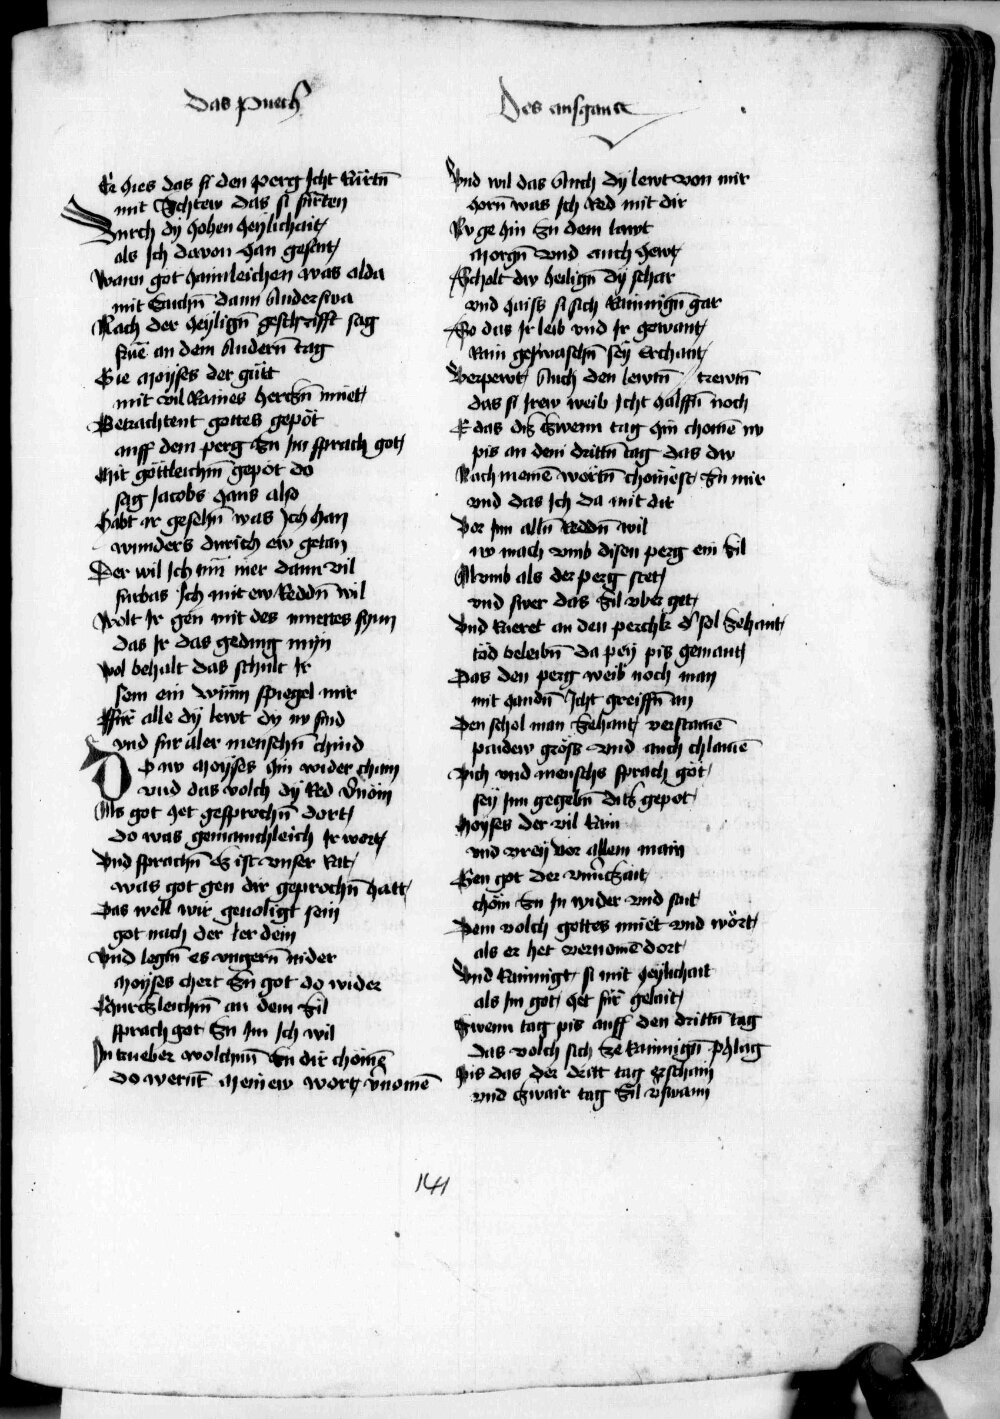 Das puech
Des ausgants
Er hies das si den perg Jcht Rürtn̄
mit Schtew das si fürten
Durch dÿ hohen heÿlichait
als Jch davon han gesait
Wann got haimleichen was alda
mit Sachn̄ dann Anderswa
Nach der heÿlign̄ geschrifft sag
fuē an dem Andern̄ tag
Gie moÿses der gütt
mit vil Raines herczn̄ müet
Betrachtent gottes gepöt
auff dem perg Zu Jm sprach got
Mit göttleichm̄ gepöt do
sag Jacobs haus also
Habt ir gesehn̄ was Jch han
wunders durich ew getan
Der wil Jch nu mer dann vil
furbas Jch mit ew Reddn̄ wil
Wolt Jr gen mit des muetes syn
das Jr das geding myn
Wol behalt das schult Jr
sein ein wunn spiegel mir
Für alle dÿ lewt dÿ nv sind
vnd für aler menschn̄ chind
Do nv Moÿses hin wider cham
vnd das volch dÿ Red v̄nöm
Als got het gesprochn̄ dort
do was gemainchleich Jr wort
Vnd sprachn̄ Es ist vnser Rat
was got gen dir geprochn̄ hatt
Das well wir geuoligt sein
got nach der ler dein
Vnd legn̄ es vngern̄ nider
Moÿses chert Zu got do wider
Churczleichn̄ an dem Zil
sprach got Zu Jm Jch wil
Jn trueber wolchnn̄ Zu dir chömē
do wernt meinew wort v̄nomē
Vnd wil das Auch dÿ lewt von mir
horn̄ was Jch Red mit dir
Nv ge hin Zu dem lawt
morgn̄ vnd auch hewt
Scholt dw heilign̄ dÿ schar
vnd haiss si sich Rainnign̄ gar
So das Jr leib vnd Jr gewant
Rain geswaschn̄ seÿ Erchant
Verpewt Auch den lewtn̄ trewtn̄
das si Jrew weib Jcht halssn̄ noch
E das dis Zwenn tag hin chomē nv
pis an dem drittn̄ tag das dw
Nach meinē wortn̄ chömest Zu mir
vnd das Jch da mit dir
Vor Jnn alln̄ Reddn̄ wil
nv mach vmb disen perg ein Zil
Al vmb als der perg stet
vnd swer das Zil vber get
Vnd Rueret an den perchk d' sol Zehant
töd beleibn̄ da peÿ pis gemant
Das den perg weib noch man
mit handn̄ Jcht greiffn̄ an
Den schol man Zehant verstainē
paidew gröss vnd auch chlainē
Vich vnd menschs sprach göt
seÿ Jnn gegebn̄ dits gepot
Moÿses der vil Rain
vnd vreÿ vor allem main
Gen got der vnuerczait
chöm Zu Jn wider vnd sait
Dem volch gottes müet vnd wört
als er het vernomē dort
Vnd Rainnigt si mit heÿlichait
als Jm got het für gelait
Zwenn tag pis auff den drittn̄ tag
das volch sich Ze Rainnign̄ phlag
Pis das der dritt tag erschain
vnd Zwair tag Zil v̄swann
141